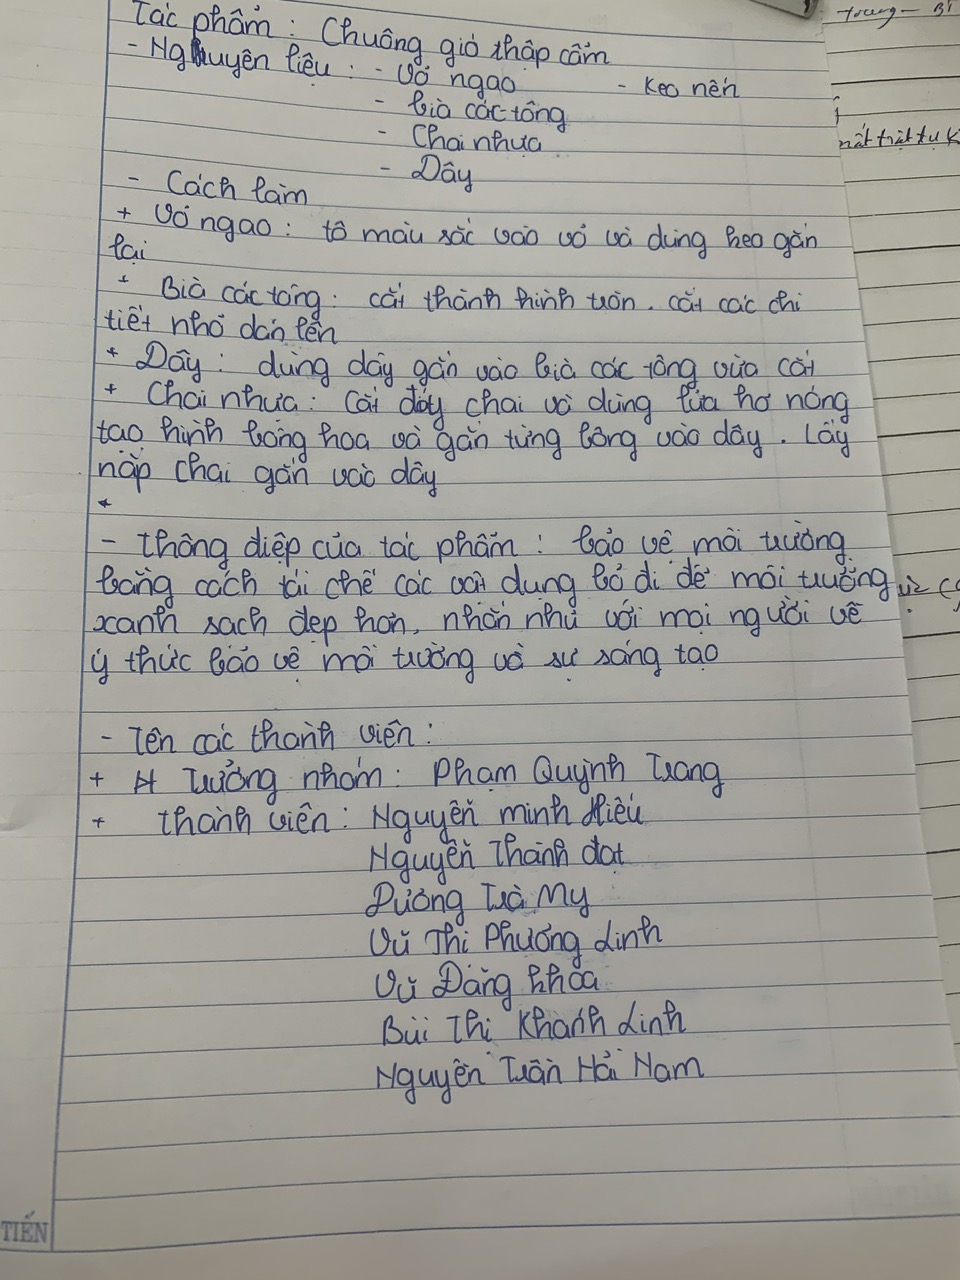 Tác phẩm : Chuông gió thập cẩm
- Nguyên liệu : - Vỏ ngao - Keo nến
- bìa các tông
- Chai nhựa
- Dây
- Cách làm
+ Vỏ ngao : tô màu sắc vào vỏ và dùng keo gắn
lại
+ Bìa các tông : cắt thành hình tròn . cắt các chi
tiết nhỏ dán lên
+ Dây : dùng dây gắn vào bìa các tông vừa cắt
+ Chai nhựa : Cắt đáy chai và dùng lửa hơ nóng
tạo hình bông hoa và gắn từng bông vào dây . Lấy
nắp chai gắn vào dây
+
- Thông điệp của tác phẩm : bảo vệ môi trường
bằng cách tái chế các vật dụng bỏ đi để môi trường
xanh sạch đẹp hơn, nhắn nhủ với mọi người về
ý thức bảo vệ môi trường và sự sáng tạo
- Tên các thành viên :
+ Trưởng nhóm : Phạm Quỳnh Trang
+ thành viên : Nguyễn minh Hiếu
Nguyễn Thành đạt
Dương Trà My
Vũ Thị Phương Linh
Vũ Đăng Khoa
Bùi Thị Khánh Linh
Nguyễn Trần Hải Nam
TIẾN
mất trật tự